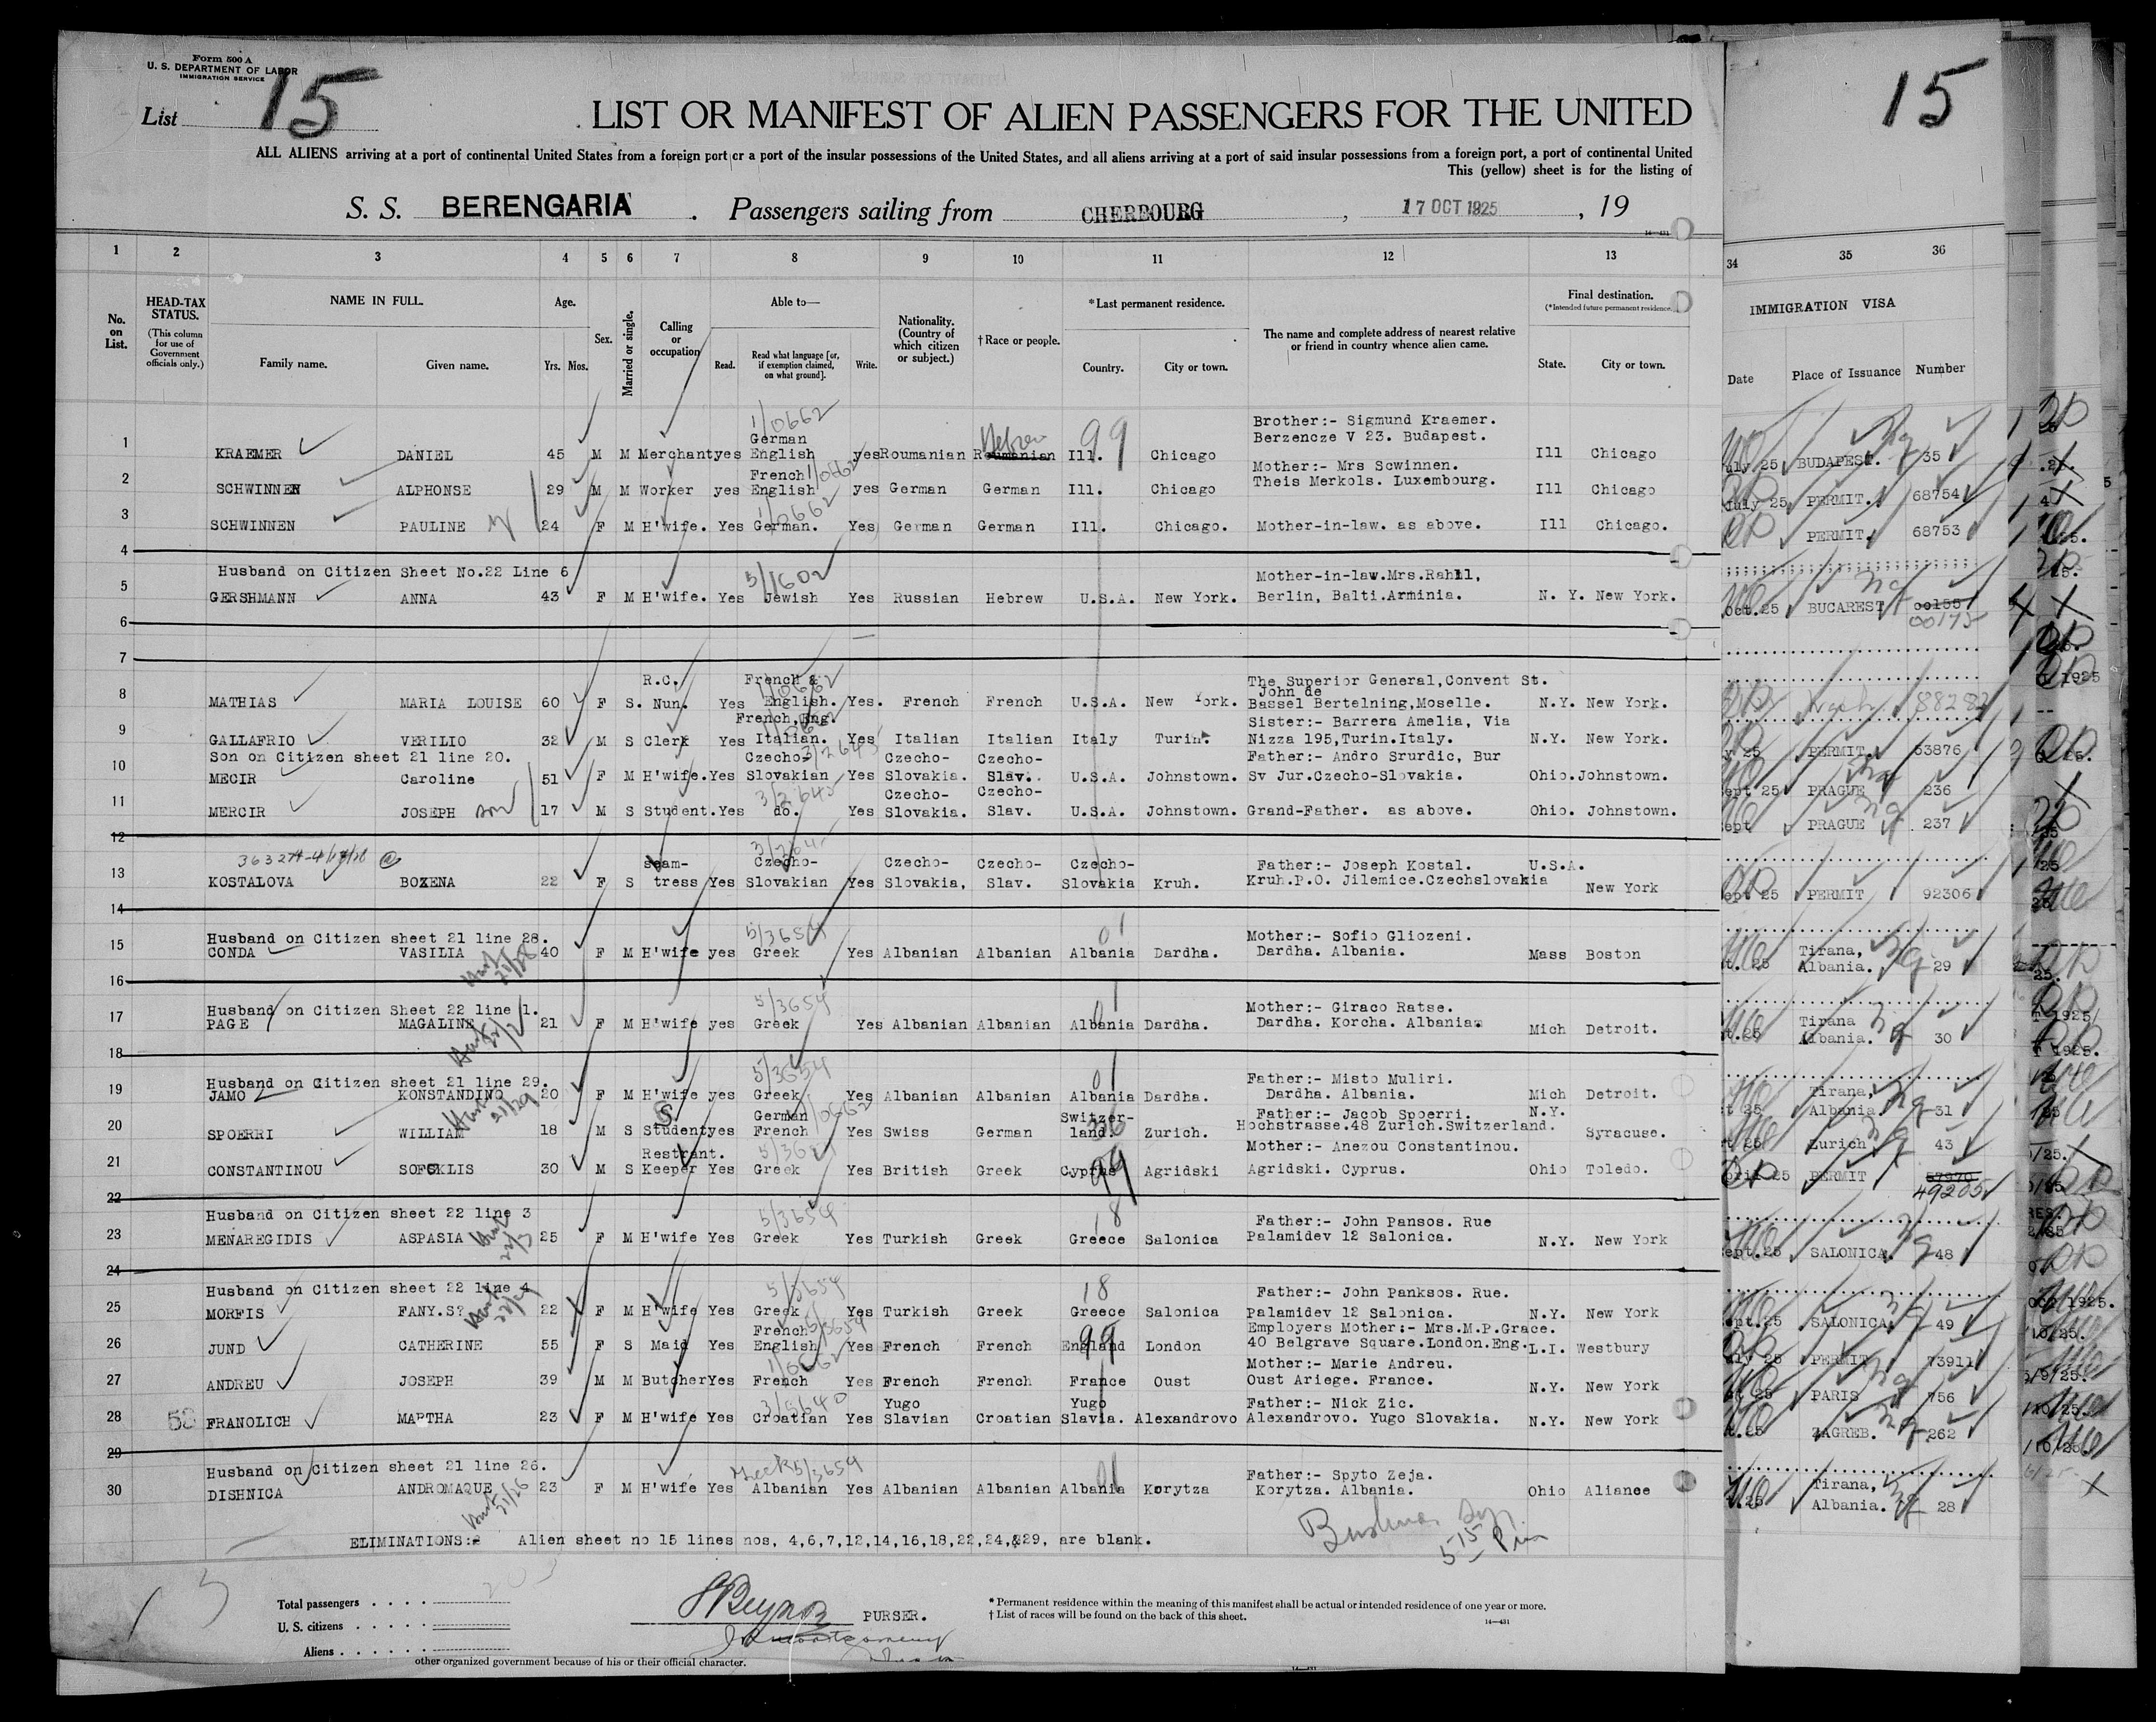 Form 500 A
U. S. DEPARTMENT OF LABOR
IMMIGRATION SERVICE
List 15
15
LIST OR MANIFEST OF ALIEN PASSENGERS FOR THE UNITED
ALL ALIENS arriving at a port of continental United States from a foreign port or a port of the insular possessions of the United States, and all aliens arriving at a port of said insular possessions from a foreign port, a port of continental United
This (yellow) sheet is for the listing of
S. S. BERENGARIA . Passengers sailing from CHERBOURG , 17 OCT 1925 , 19
1 2 3 4 5 6 7 8 9 10 11 12 13 34 35 36
No. on List.
HEAD-TAX STATUS. (This column for use of Government officials only.)
NAME IN FULL. Family name. Given name.
Age. Yrs. Mos.
Sex.
Married or single.
Calling or occupation
Able to— Read. Read what language [or, if exemption claimed, on what ground]. Write.
Nationality. (Country of which citizen or subject.)
† Race or people.
* Last permanent residence. Country. City or town.
The name and complete address of nearest relative or friend in country whence alien came.
Final destination. (*Intended future permanent residence.) State. City or town.
IMMIGRATION VISA
Date Place of Issuance Number
1 KRAEMER DANIEL 45 M M Merchant yes German English yes Roumanian Roumanian Hebrew Ill. Chicago Brother:- Sigmund Kraemer. Berzencze V 23. Budapest. Ill Chicago uly 25 BUDAPEST. 35
1/0662
99
2 SCHWINNEN ALPHONSE 29 M M Worker yes French English yes German German Ill. Chicago Mother:- Mrs Scwinnen. Theis Merkols. Luxembourg. Ill Chicago July 25 PERMIT. 68754
3 SCHWINNEN PAULINE 24 F M H'wife. Yes German. Yes German German Ill. Chicago. Mother-in-law. as above. Ill Chicago. PERMIT. 68753
1/0662
4
Husband on Citizen Sheet No.22 Line 6
5/1602
5 GERSHMANN ANNA 43 F M H'wife. Yes Jewish Yes Russian Hebrew U.S.A. New York. Mother-in-law.Mrs.Rahil, Berlin, Balti.Arminia. N. Y. New York. Oct.25 BUCAREST 00155 00175
6
7
8 MATHIAS MARIA LOUISE 60 F S. R.C. Nun. Yes French & English. Yes. French French U.S.A. New York. The Superior General,Convent St. John de Bassel Bertelning,Moselle. N.Y. New York. 88282
9 GALLAFRIO VERILIO 32 M S Clerk Yes French,Eng. Italian. Yes Italian Italian Italy Turin. Sister:- Barrera Amelia, Via Nizza 195,Turin.Italy. N.Y. New York. y 25 PERMIT. 53876
Son on Citizen sheet 21 line 20.
10 MECIR Caroline 51 F M H'wife. Yes Czecho- Slovakian Yes Czecho- Slovakia. Czecho- Slav. U.S.A. Johnstown. Father:- Andro Srurdic, Bur Sv Jur.Czecho-Slovakia. Ohio. Johnstown. ept 25 PRAGUE 236
3/2645
11 MERCIR JOSEPH son 17 M S Student. Yes do. Yes Czecho- Slovakia. Czecho- Slav. U.S.A. Johnstown. Grand-Father. as above. Ohio. Johnstown. ept PRAGUE 237
3/2645
12
13 KOSTALOVA BOZENA 22 F S seam- tress Yes Czecho- Slovakian Yes Czecho- Slovakia, Czecho- Slav. Czecho- Slovakia Kruh. Father:- Joseph Kostal. Kruh.P.O. Jilemice.Czechslovakia U.S.A. New York ept 25 PERMIT 92306
14
Husband on Citizen sheet 21 line 28.
5/3654
15 CONDA VASILIA 40 F M H'wife yes Greek Yes Albanian Albanian Albania Dardha. Mother:- Sofio Gliozeni. Dardha. Albania. Mass Boston t. 25 Tirana, Albania. 29
16
Husband on Citizen Sheet 22 line 1.
5/3654
17 PAGE MAGALINE 21 F M H'wife yes Greek Yes Albanian Albanian Albania Dardha. Mother:- Giraco Ratse. Dardha. Korcha. Albania. Mich Detroit. t.25 Tirana Albania. 30
18
Husband on Citizen sheet 21 line 29.
5/3654
19 JAMO KONSTANDINO 20 F M H'wife yes Greek Yes Albanian Albanian Albania Dardha. Father:- Misto Muliri. Dardha. Albania. Mich Detroit. t 25 Tirana, Albania 31
20 SPOERRI WILLIAM 18 M S Student yes German French Yes Swiss German Switzer- land. Zurich. Father:- Jacob Spoerri. Hochstrasse.48 Zurich.Switzerland. N.Y. Syracuse. t 25 Zurich 43
21 CONSTANTINOU SOFOKLIS 30 M S Restrant. Keeper Yes Greek Yes British Greek Cyprus Agridski Mother:- Anezou Constantinou. Agridski. Cyprus. Ohio Toledo. pril 25 PERMIT 57970 49205
99
22
Husband on Citizen sheet 22 line 3
5/3654
18
23 MENAREGIDIS ASPASIA 25 F M H'wife Yes Greek Yes Turkish Greek Greece Salonica Father:- John Pansos. Rue Palamidev 12 Salonica. N.Y. New York ept.25 SALONICA. 48
24
Husband on Citizen sheet 22 line 4
5/3654
18
25 MORFIS FANY.S? 22 F M H'wife Yes Greek Yes Turkish Greek Greece Salonica Father:- John Panksos. Rue. Palamidev 12 Salonica. N.Y. New York ept.25 SALONICA. 49
26 JUND CATHERINE 55 F S Maid Yes French English Yes French French England London Employers Mother:- Mrs.M.P.Grace. 40 Belgrave Square.London.Eng. L.I. Westbury uly 25 PERMIT 73911
99
27 ANDREU JOSEPH 39 M M Butcher Yes French Yes French French France Oust Mother:- Marie Andreu. Oust Ariege. France. N.Y. New York 25 PARIS 756
28 FRANOLICH MARTHA 23 F M H'wife Yes Croatian Yes Yugo Slavian Croatian Yugo Slavia. Alexandrovo Father:- Nick Zic. Alexandrovo. Yugo Slovakia. N.Y. New York .25 ZAGREB. 262
3/5640
29
Husband on Citizen sheet 21 line 26.
Greek 5/3654
30 DISHNICA ANDROMAQUE 23 F M H'wife Yes Albanian Yes Albanian Albanian Albania Korytza Father:- Spyto Zeja. Korytza. Albania. Ohio Aliance .25 Tirana, Albania. 28
ELIMINATIONS: Alien sheet no 15 lines nos, 4,6,7,12,14,16,18,22,24,&29, are blank.
Total passengers . . . .
U. S. citizens . . . . .
Aliens . . . . .
PURSER.
* Permanent residence within the meaning of this manifest shall be actual or intended residence of one year or more.
† List of races will be found on the back of this sheet.
14—431
other organized government because of his or their official character.